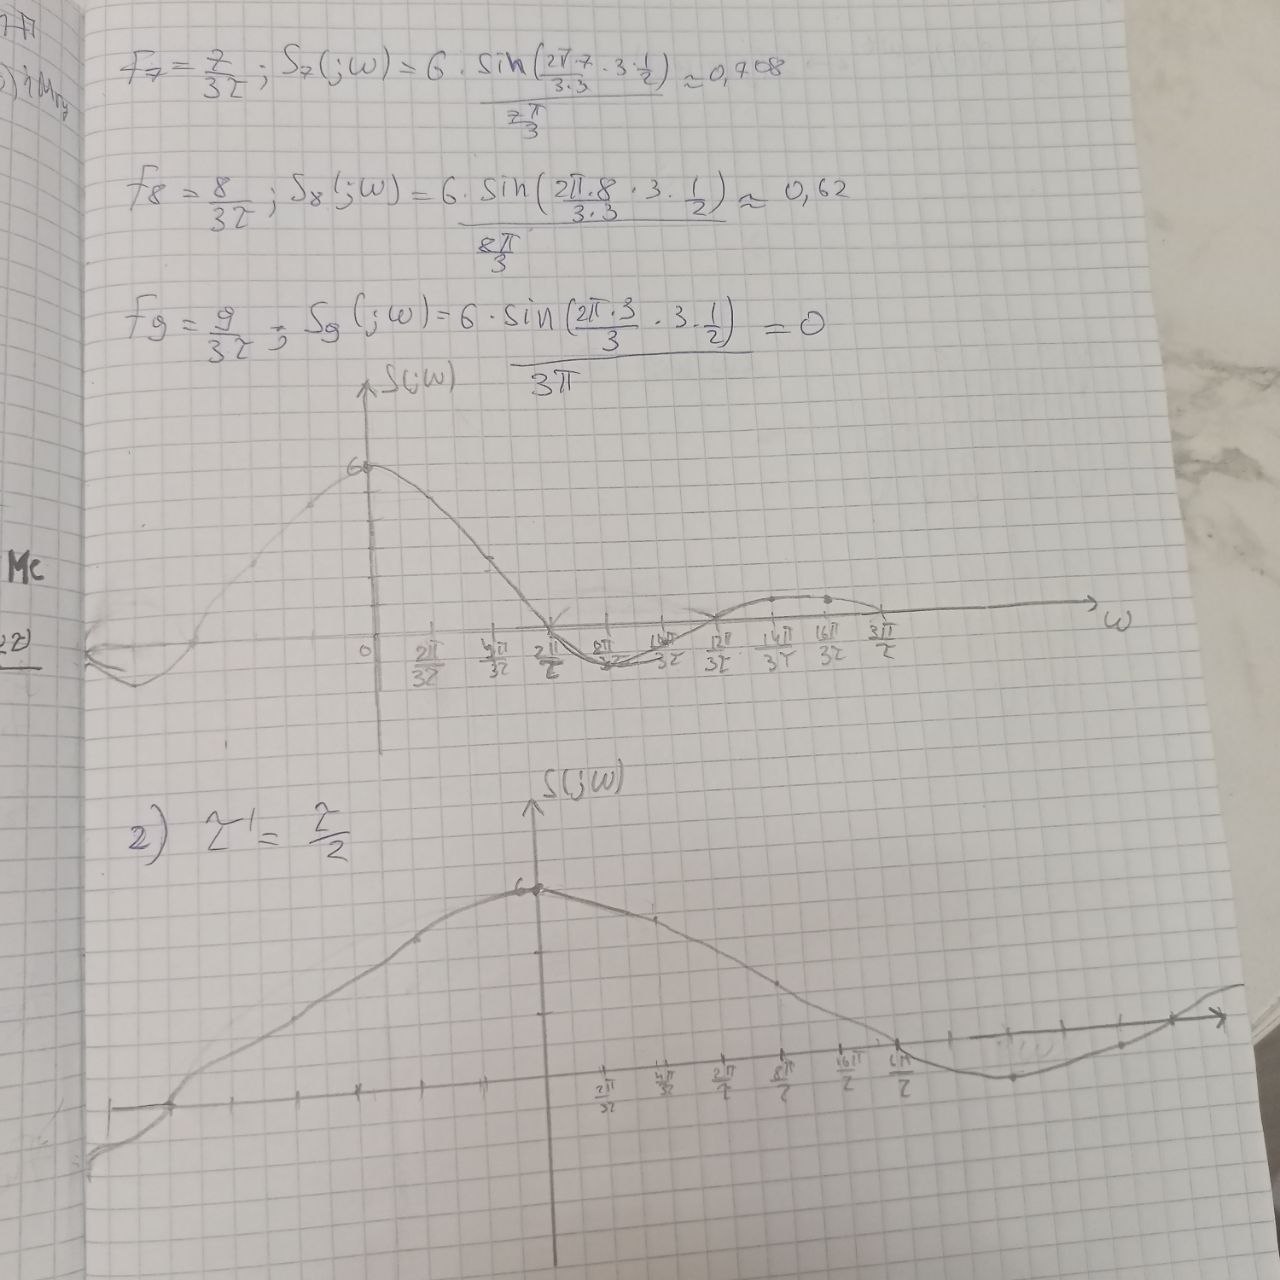 F7 = 7/3τ ; S7(jω) = 6 · sin(2π·7/3·3 · 3 · 1/2) / 7π/3 ≈ 0,708
F8 = 8/3τ ; S8(jω) = 6 · sin(2π·8/3·3 · 3 · 1/2) / 8π/3 ≈ 0,62
F9 = 9/3τ ; S9(jω) = 6 · sin(2π·3/3 · 3 · 1/2) / 3π = 0
S(jω)
6
Мс
0 2π/3τ 4π/3τ 2π/τ 8π/3τ 10π/3τ 12π/3τ 14π/3τ 16π/3τ 3π/τ ω
S(jω)
2) τ' = τ/2
6
2π/3τ 4π/3τ 2π/τ 8π/τ 16π/τ